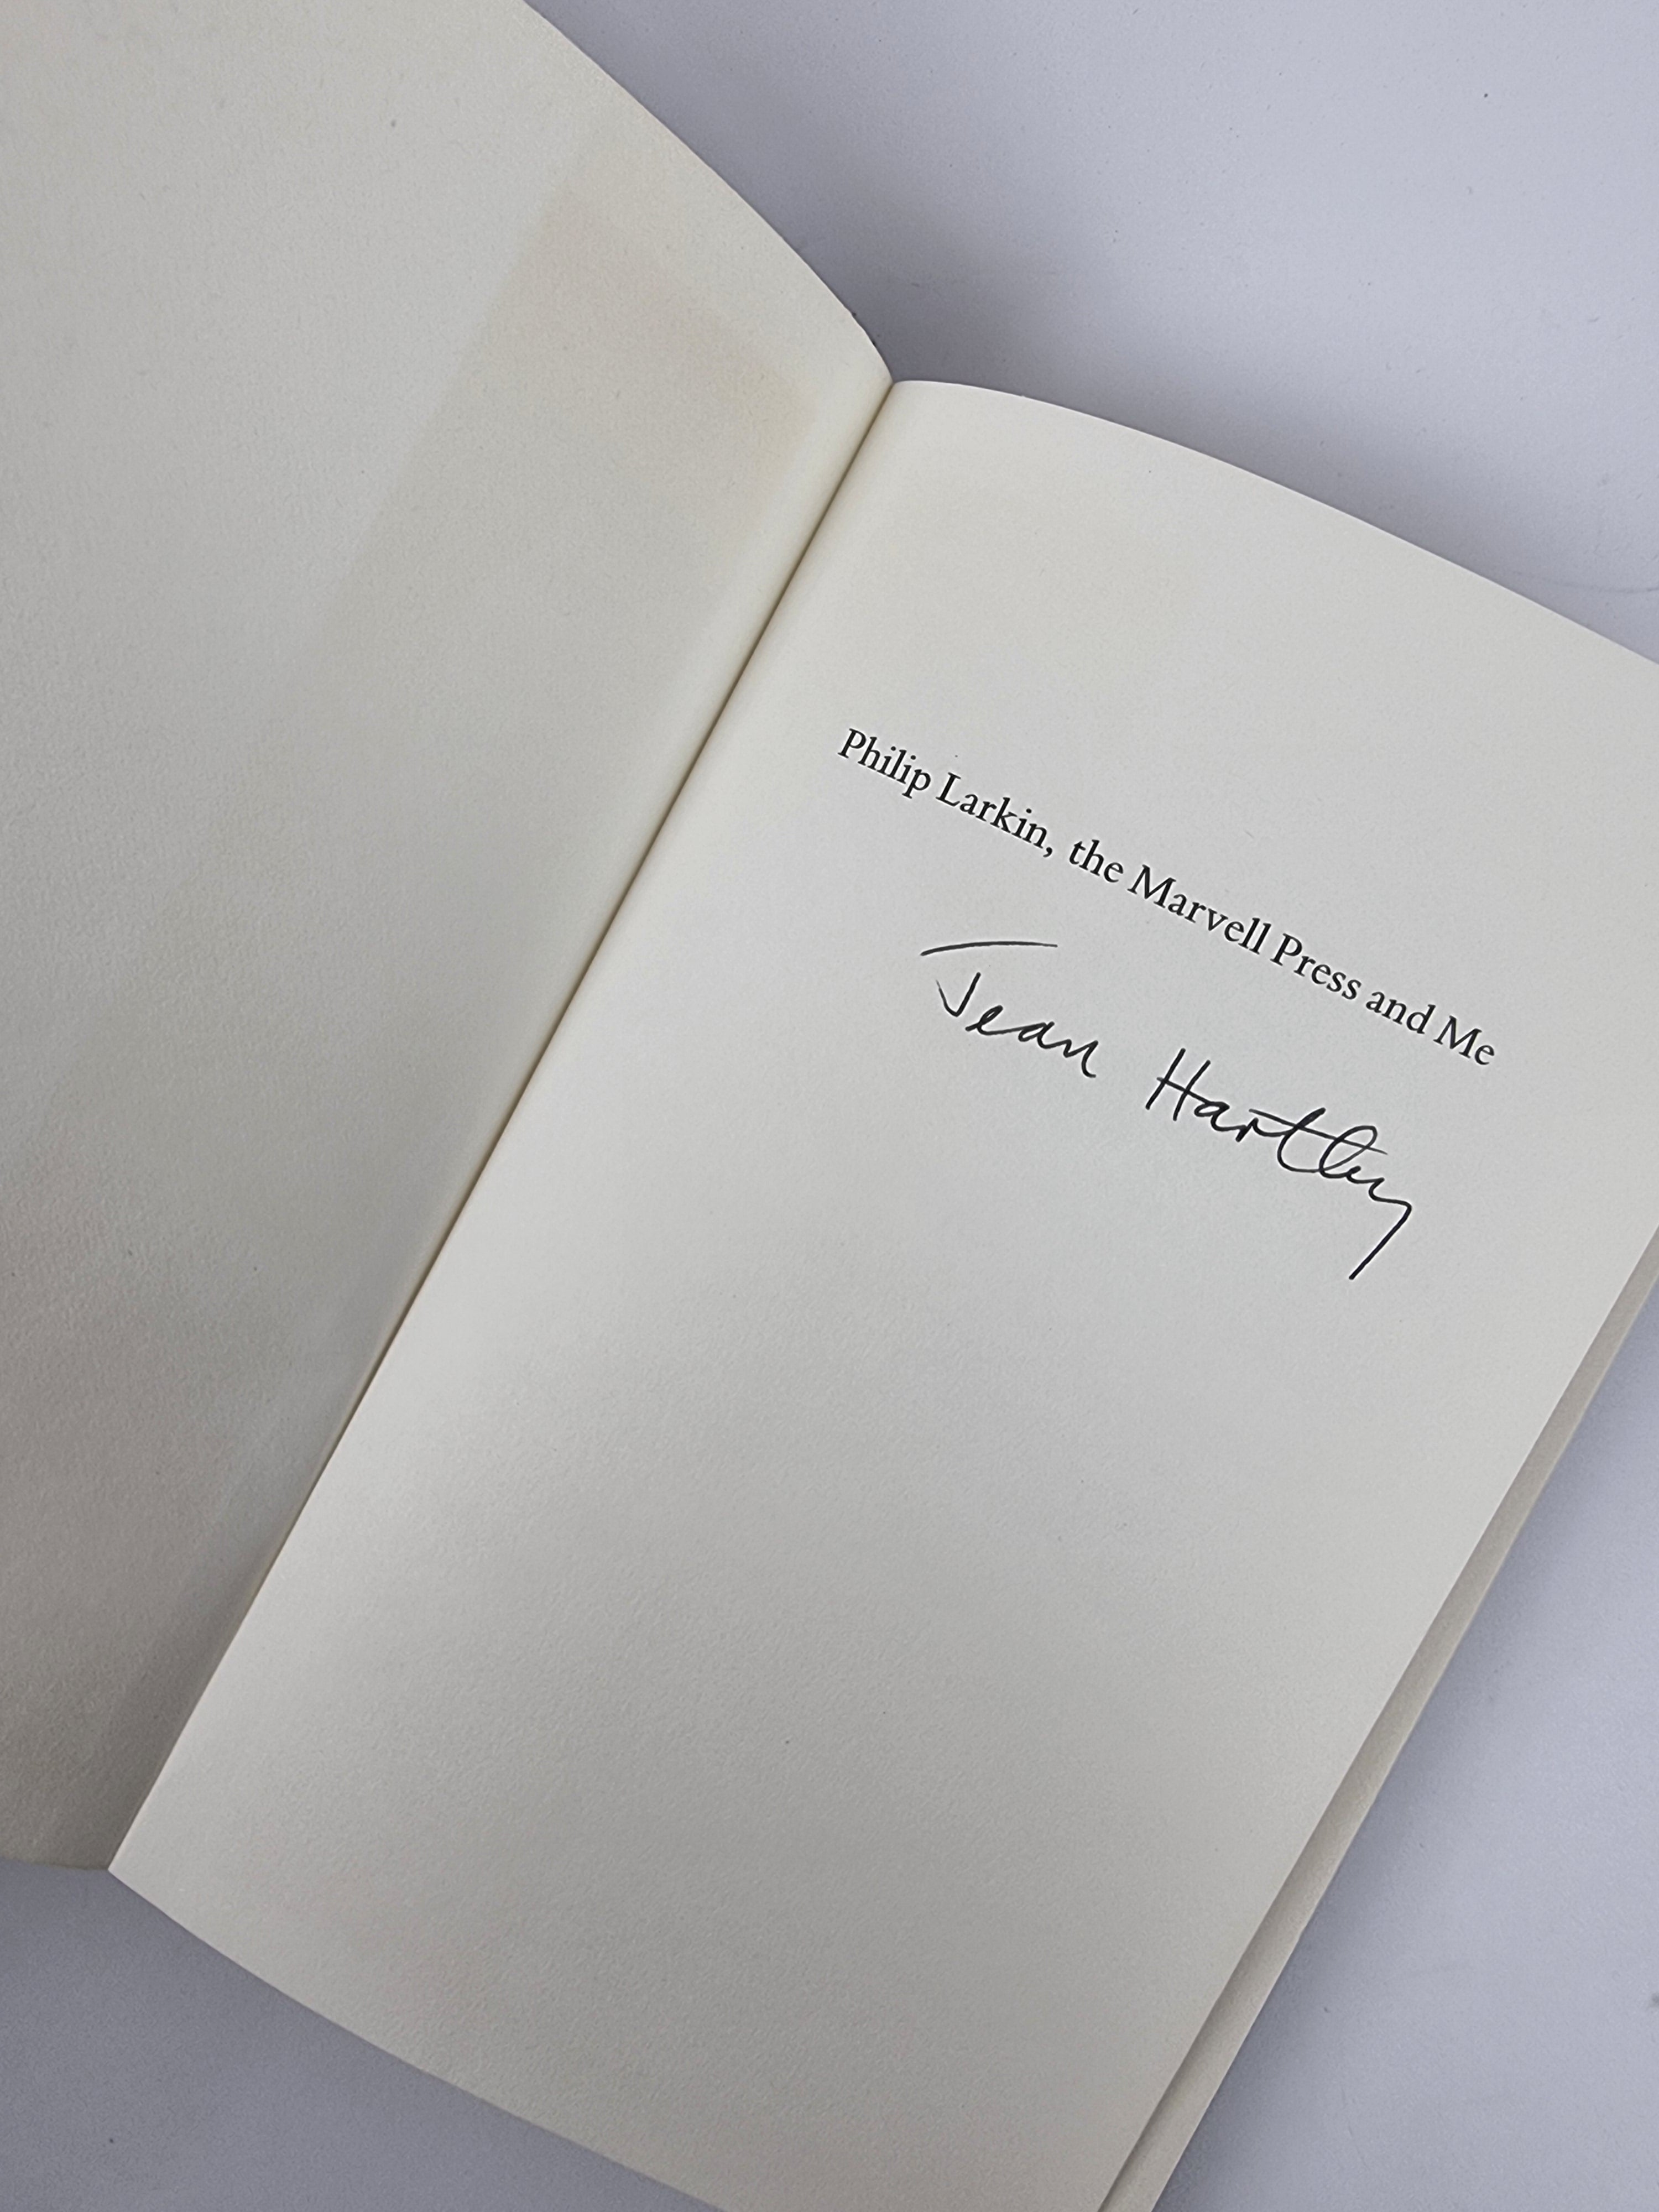 Philip Larkin, the Marvell Press and Me
Jean Hartley